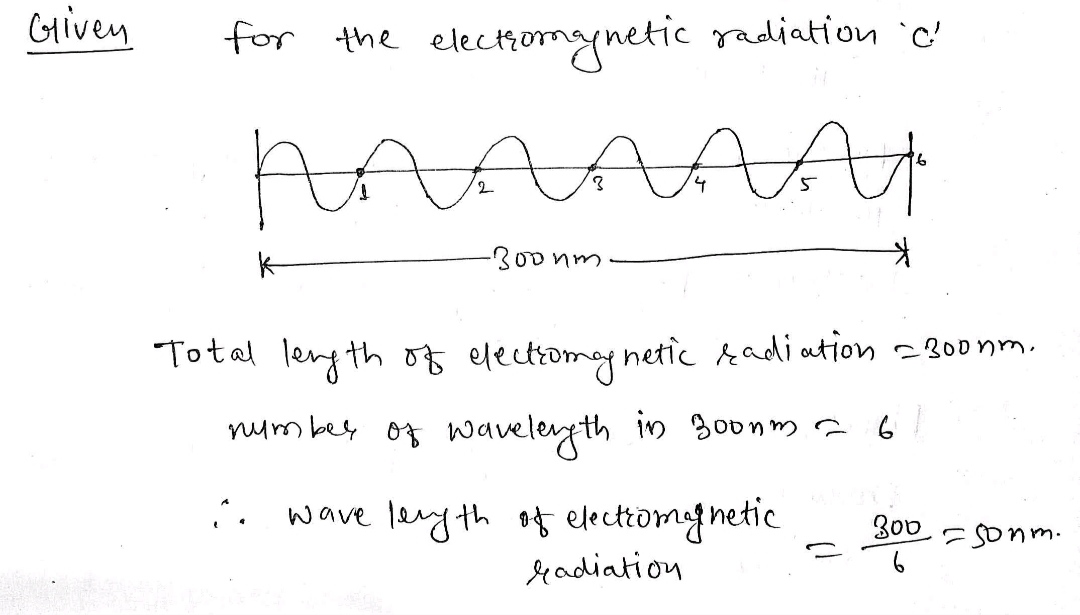 Given for the electromagnetic radiation 'C'
1 2 3 4 5 6
300 nm
Total length of electromagnetic radiation = 300 nm.
number of wavelength in 300 nm = 6
∴ wave length of electromagnetic radiation = 300/6 = 50 nm.